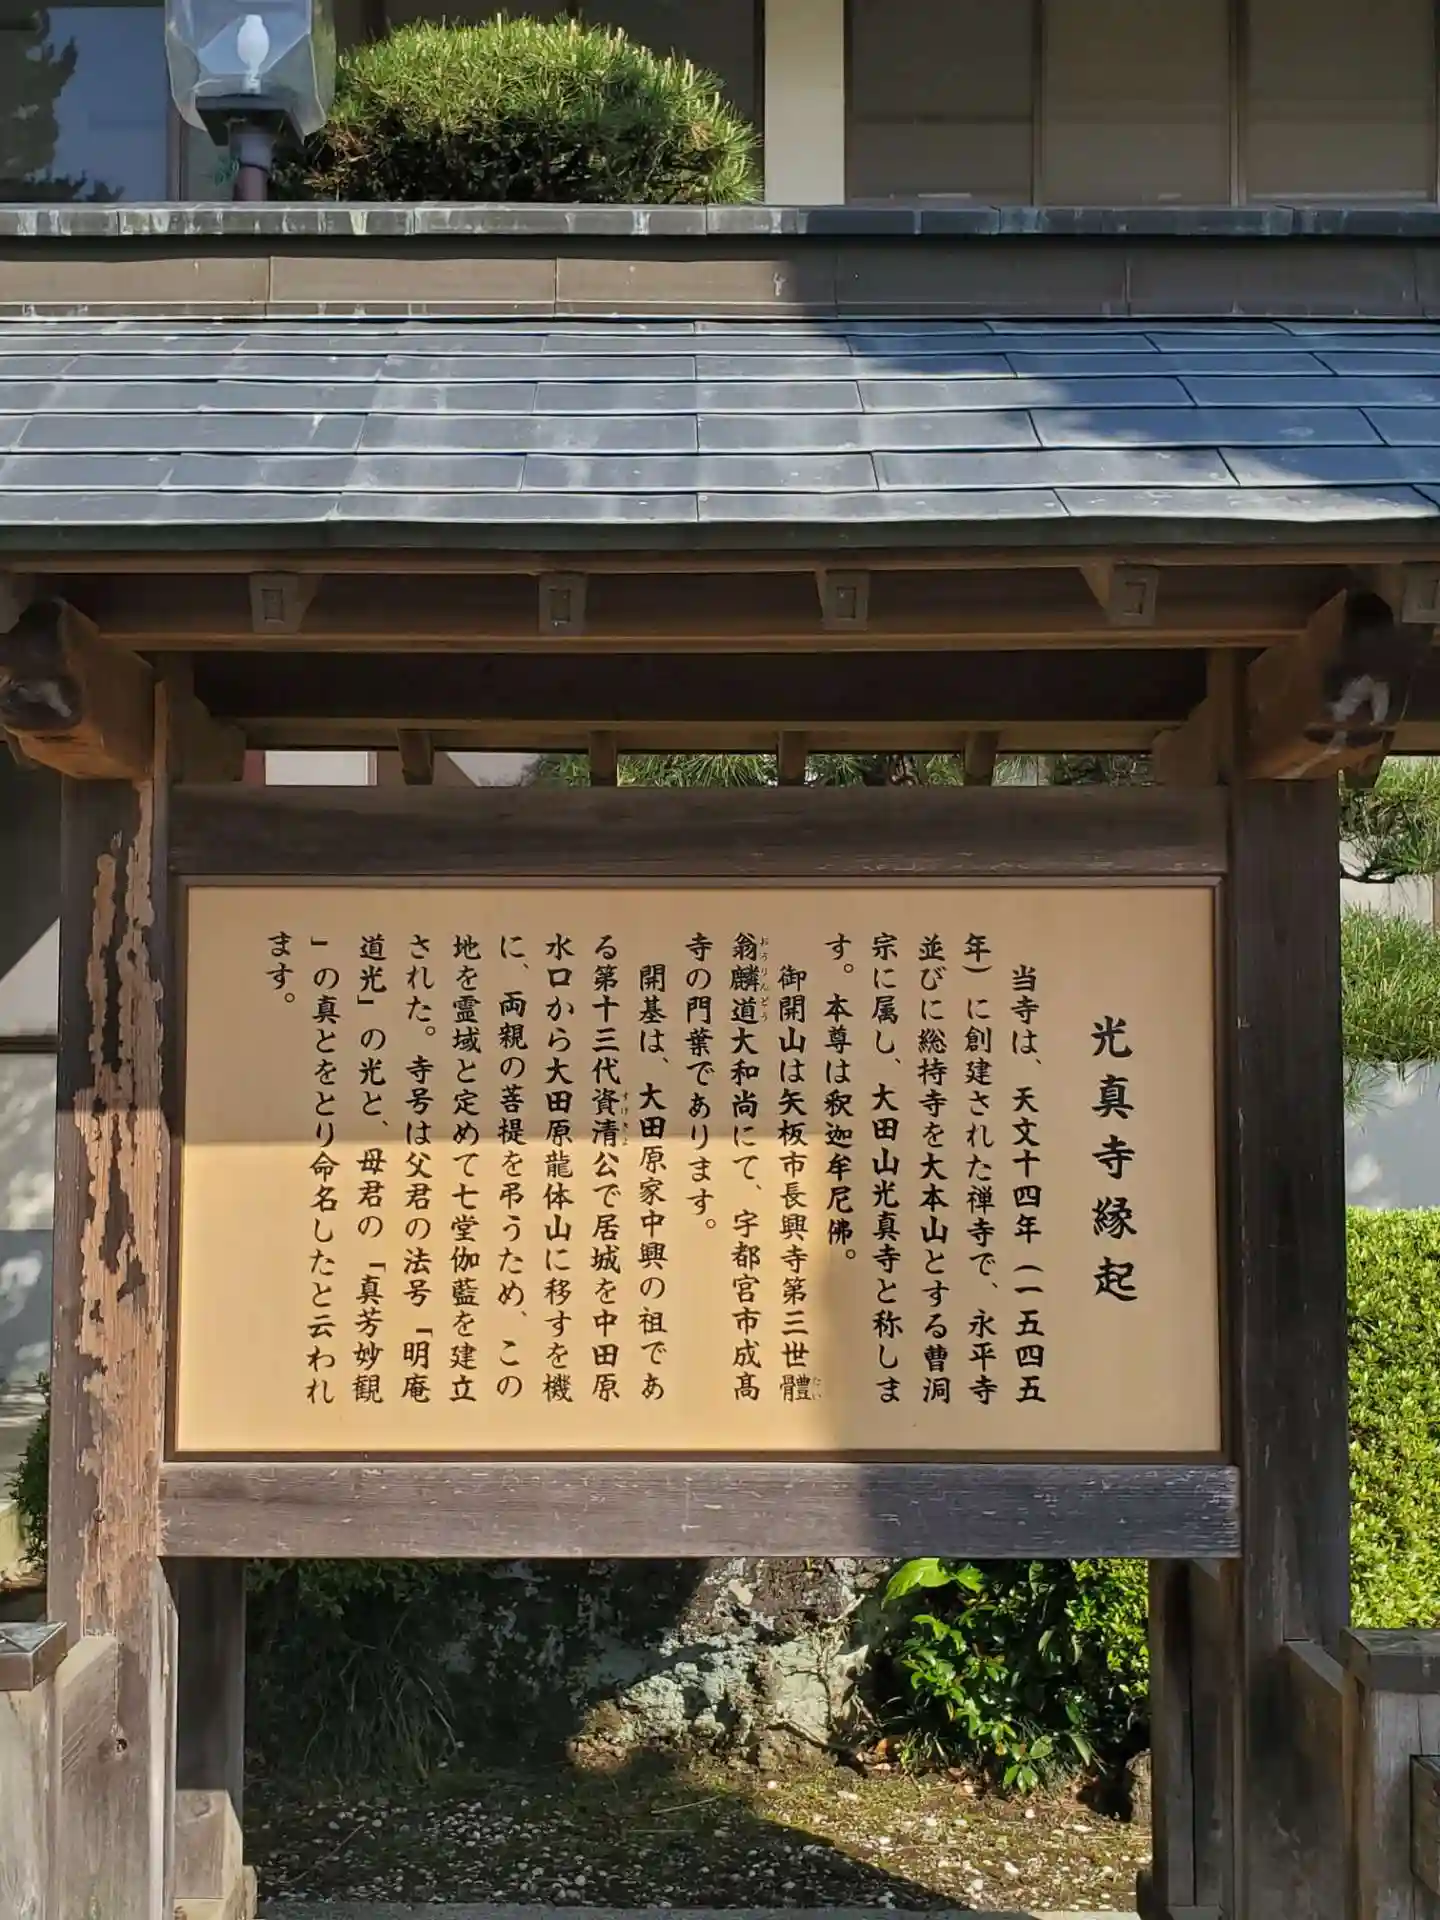 光真寺縁起
当寺は、天文十四年（一五四五
年）に創建された禅寺で、永平寺
並びに総持寺を大本山とする曹洞
宗に属し、大田山光真寺と称しま
す。本尊は釈迦牟尼佛。
御開山は矢板市長興寺第三世體
たい
翁麟道大和尚にて、宇都宮市成髙
おうりんどう
寺の門葉であります。
開基は、大田原家中興の祖であ
る第十三代資清公で居城を中田原
すけきよ
水口から大田原龍体山に移すを機
に、両親の菩提を弔うため、この
地を霊域と定めて七堂伽藍を建立
された。寺号は父君の法号「明庵
道光」の光と、母君の「真芳妙観
」の真とをとり命名したと云われ
ます。